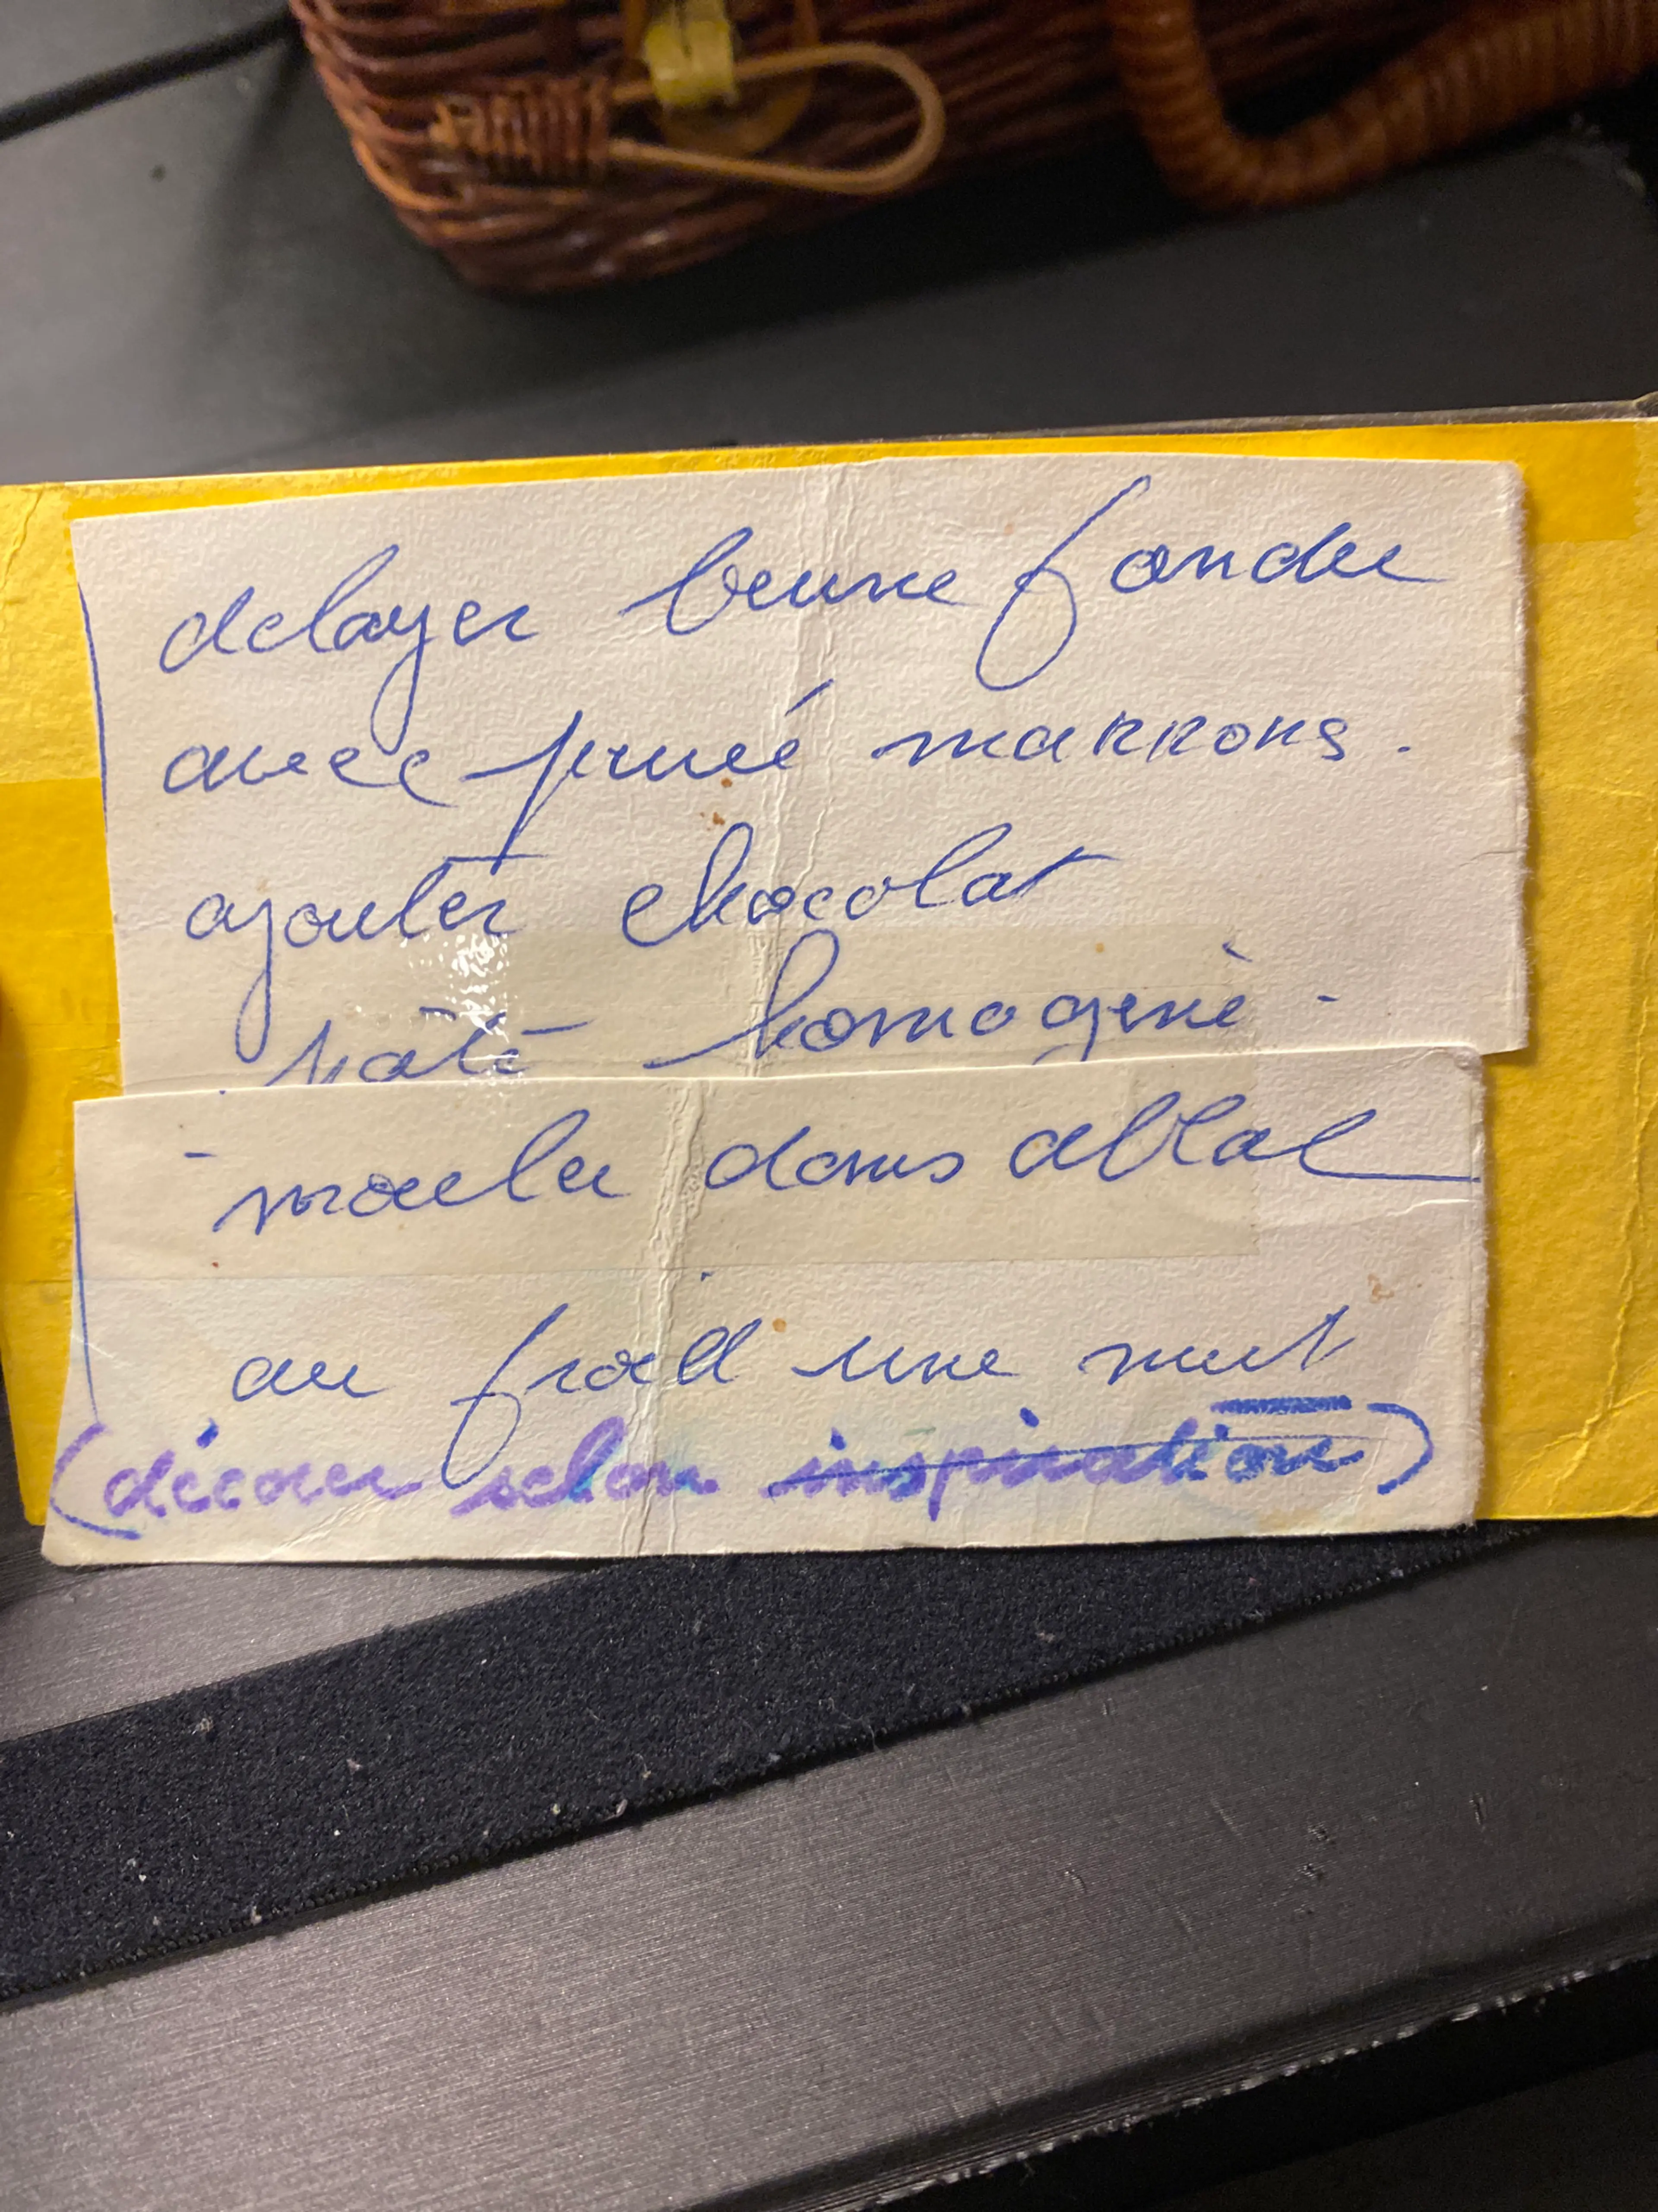 delayer beurre fondu
avec purée marrons.
ajouter chocolat
pâte homogène -
- mouler dans allal
au froid une nuit
(décorer selon inspiration)